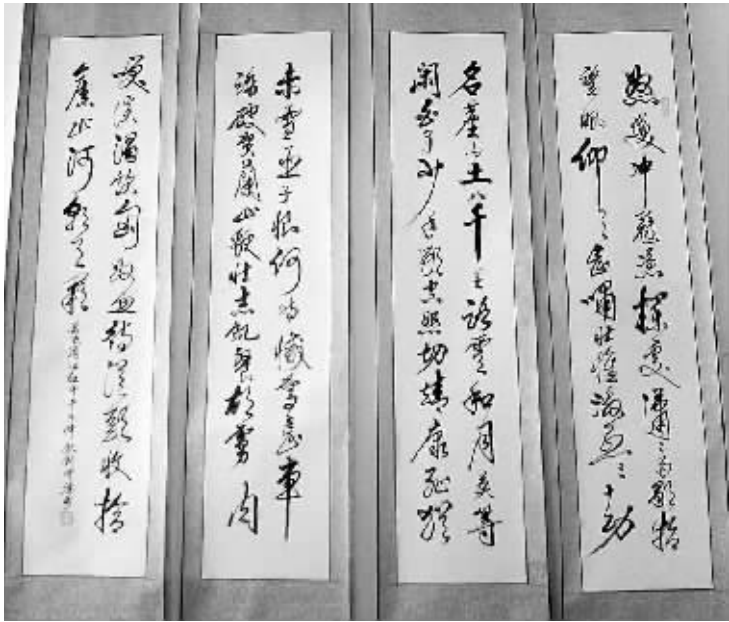 怒髮冲冠憑欄處瀟瀟雨歇抬
望眼仰天長嘯壯懷激烈三十功
名塵与土八千里路雲和月莫等
閑白了少年頭空悲切靖康恥猶
未雪臣子恨何時滅駕長車
踏破賀蘭山缺壯志飢餐胡虜肉
笑談渴飲匈奴血待從頭收拾
舊山河朝天闕